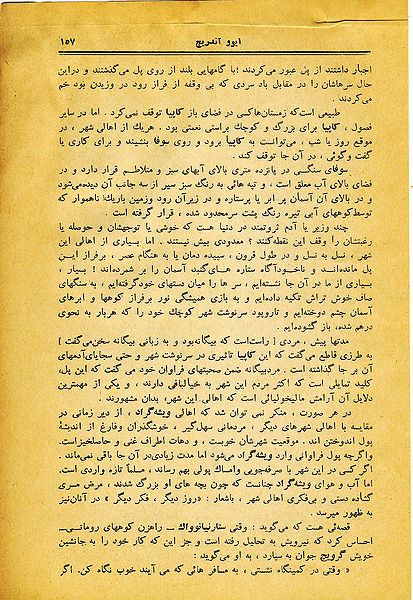 ایوو آندریچ ۱۵۷
اجبار داشتند از پل عبور می‌کردند !با گامهایی بلند از روی پل می‌گذشتند و دراین
حال سرهاشان را در مقابل باد سردی که بی وقفه از فراز رود در وزیدن بود خم
می‌کردند .
طبیعی است‌که زمستان‌هاکسی در فضای باز کاپیا توقف نمی‌کرد . اما در سایر
فصول ، کاپیا برای بزرگ و کوچك براستی نعمتی بود . هریك از اهالی شهر ، در
موقع روز یا شب ، می‌توانست به کاپیا برود و روی سوفا بنشیند و برای کاری یا
گفت و گوئی ، در آن جا توقف کند .
سوفای سنگی در پانزده متری بالای آبهای سبز و متلاطم قرار دارد و در
فضای بالای آب معلق است ، و تپه هائی به رنگ سبز سیر از سه جانب آن دیده‌میشود
و در بالای آن آسمان پر ابر یا پرستاره و در زیرآن رود وزمین باریك ناهموار که
توسط‌کوههای آبی تیره رنگ پشت سرمحدود شده ، قرار گرفته است .
چند وزیر یا آدم ثروتمند در دنیا هست که خوشی یا توجهشان و حوصله یا
رغبتشان را وقف این نقطه‌کنند ؟ معدودی بیش نیستند . اما بسیاری از اهالی این
شهر ، نسل به نسل و در طول قرون ، سپیده دمان یا به هنگام عصر ، برفراز ایـن
پل مانده‌انـد و ناخـودآگاه ستاره های‌گنبد آسمان را بر شمرده‌اند ! بسیار ،
بسیاری از ما در آن جا نشسته‌ایم ، سر ها را میان دستهای خودگرفته‌ایم ، به سنگهای
صاف خوش تراش تکیه داده‌ایم و به بازی همیشگی نور برفراز کوهها و ابرهای
آسمان چشم دوخته‌ایم و تاروپود سرنوشت شهر کوچك خود را که هربار به نحوی
درهم شده، باز گشوده‌ایم .
مدتها پیش ، مردی [ راست‌است که بیگانه‌بود و به زبانی بیگانه سخن‌می‌گفت ]
به طرزی قاطع می‌گفت که این کاپیا تاثیری در سرنوشت شهر و حتی سجایای‌آدمهای
آن بر جا گذاشته است . مردبیگانه ضمن صحبتهای فراوان خود می گفت که این پل،
کلید تمایلی است که اکثر مردم این شهر به خیالبافی دارند ، و یکی از مهمترین
دلایل آن آرامش مالیخولیائی است که اهالی این‌شهر، بدان مشهورند .
در هر صورت ، منکر نمی توان شد که اهالی ویشه‌گراد ، از دیر زمانی در
مقایسه با اهالی شهرهای دیگر ، مردمانی سهل‌گیر ، خوشگذران وفارغ از اندیشهٔ
پول اندوختن اند . موقعیت شهرشان خوبست ، و دهات اطراف غنی و حاصلخیزاست.
واگرچه پول فراوانی وارد ویشه‌گراد می‌شود اما مدت زیادی‌در آن جا باقی نمی‌ماند .
اگر کسی در این شهر با صرفه‌جویی وامساك پولی بهم رساند ، مسلماً تازه واردی است.
اما آب و هوای ویشه‌گراد چنانست که چون بچه های او بزرگ شدند ، مرض مسری
گشاده دستی و بی‌فکری اهالی شهر ، باشعار : «روز دیگر ، فکر دیگر » در آنان‌نیز
به ظهور میرسد .
قصه‌ئی هست که می‌گوید : وقتی ستارنیانوواك ـ راهزن کوههای رومانی‌ـ
احساس کرد که نیرویش به تحلیل رفته است و جز این که کار خود را به جانشین
خویش گرویچ جوان به سپارد ، به او می‌گوید :
« وقتی در کمینگاه نشستی ، به مسافر هائی که می آیند خوب نگاه کن. اگر